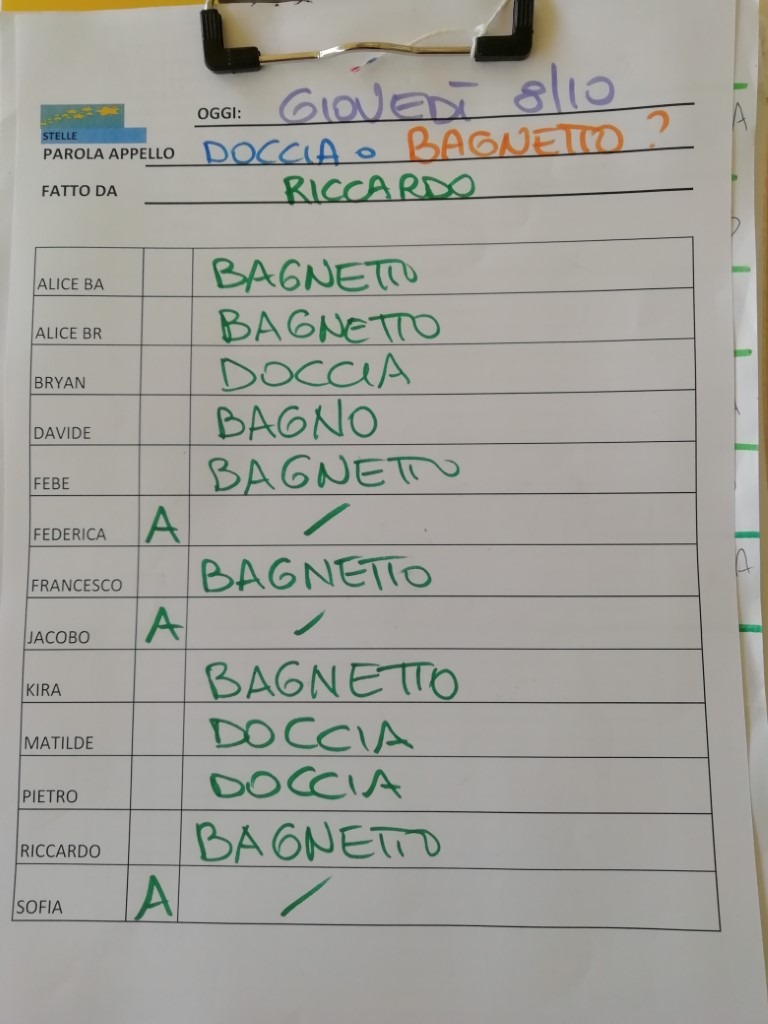 OGGI: GIOVEDÌ 8/10
STELLE
PAROLA APPELLO DOCCIA O BAGNETTO?
FATTO DA RICCARDO
ALICE BA BAGNETTO
ALICE BR BAGNETTO
BRYAN DOCCIA
DAVIDE BAGNO
FEBE BAGNETTO
FEDERICA A /
FRANCESCO BAGNETTO
JACOBO A /
KIRA BAGNETTO
MATILDE DOCCIA
PIETRO DOCCIA
RICCARDO BAGNETTO
SOFIA A /